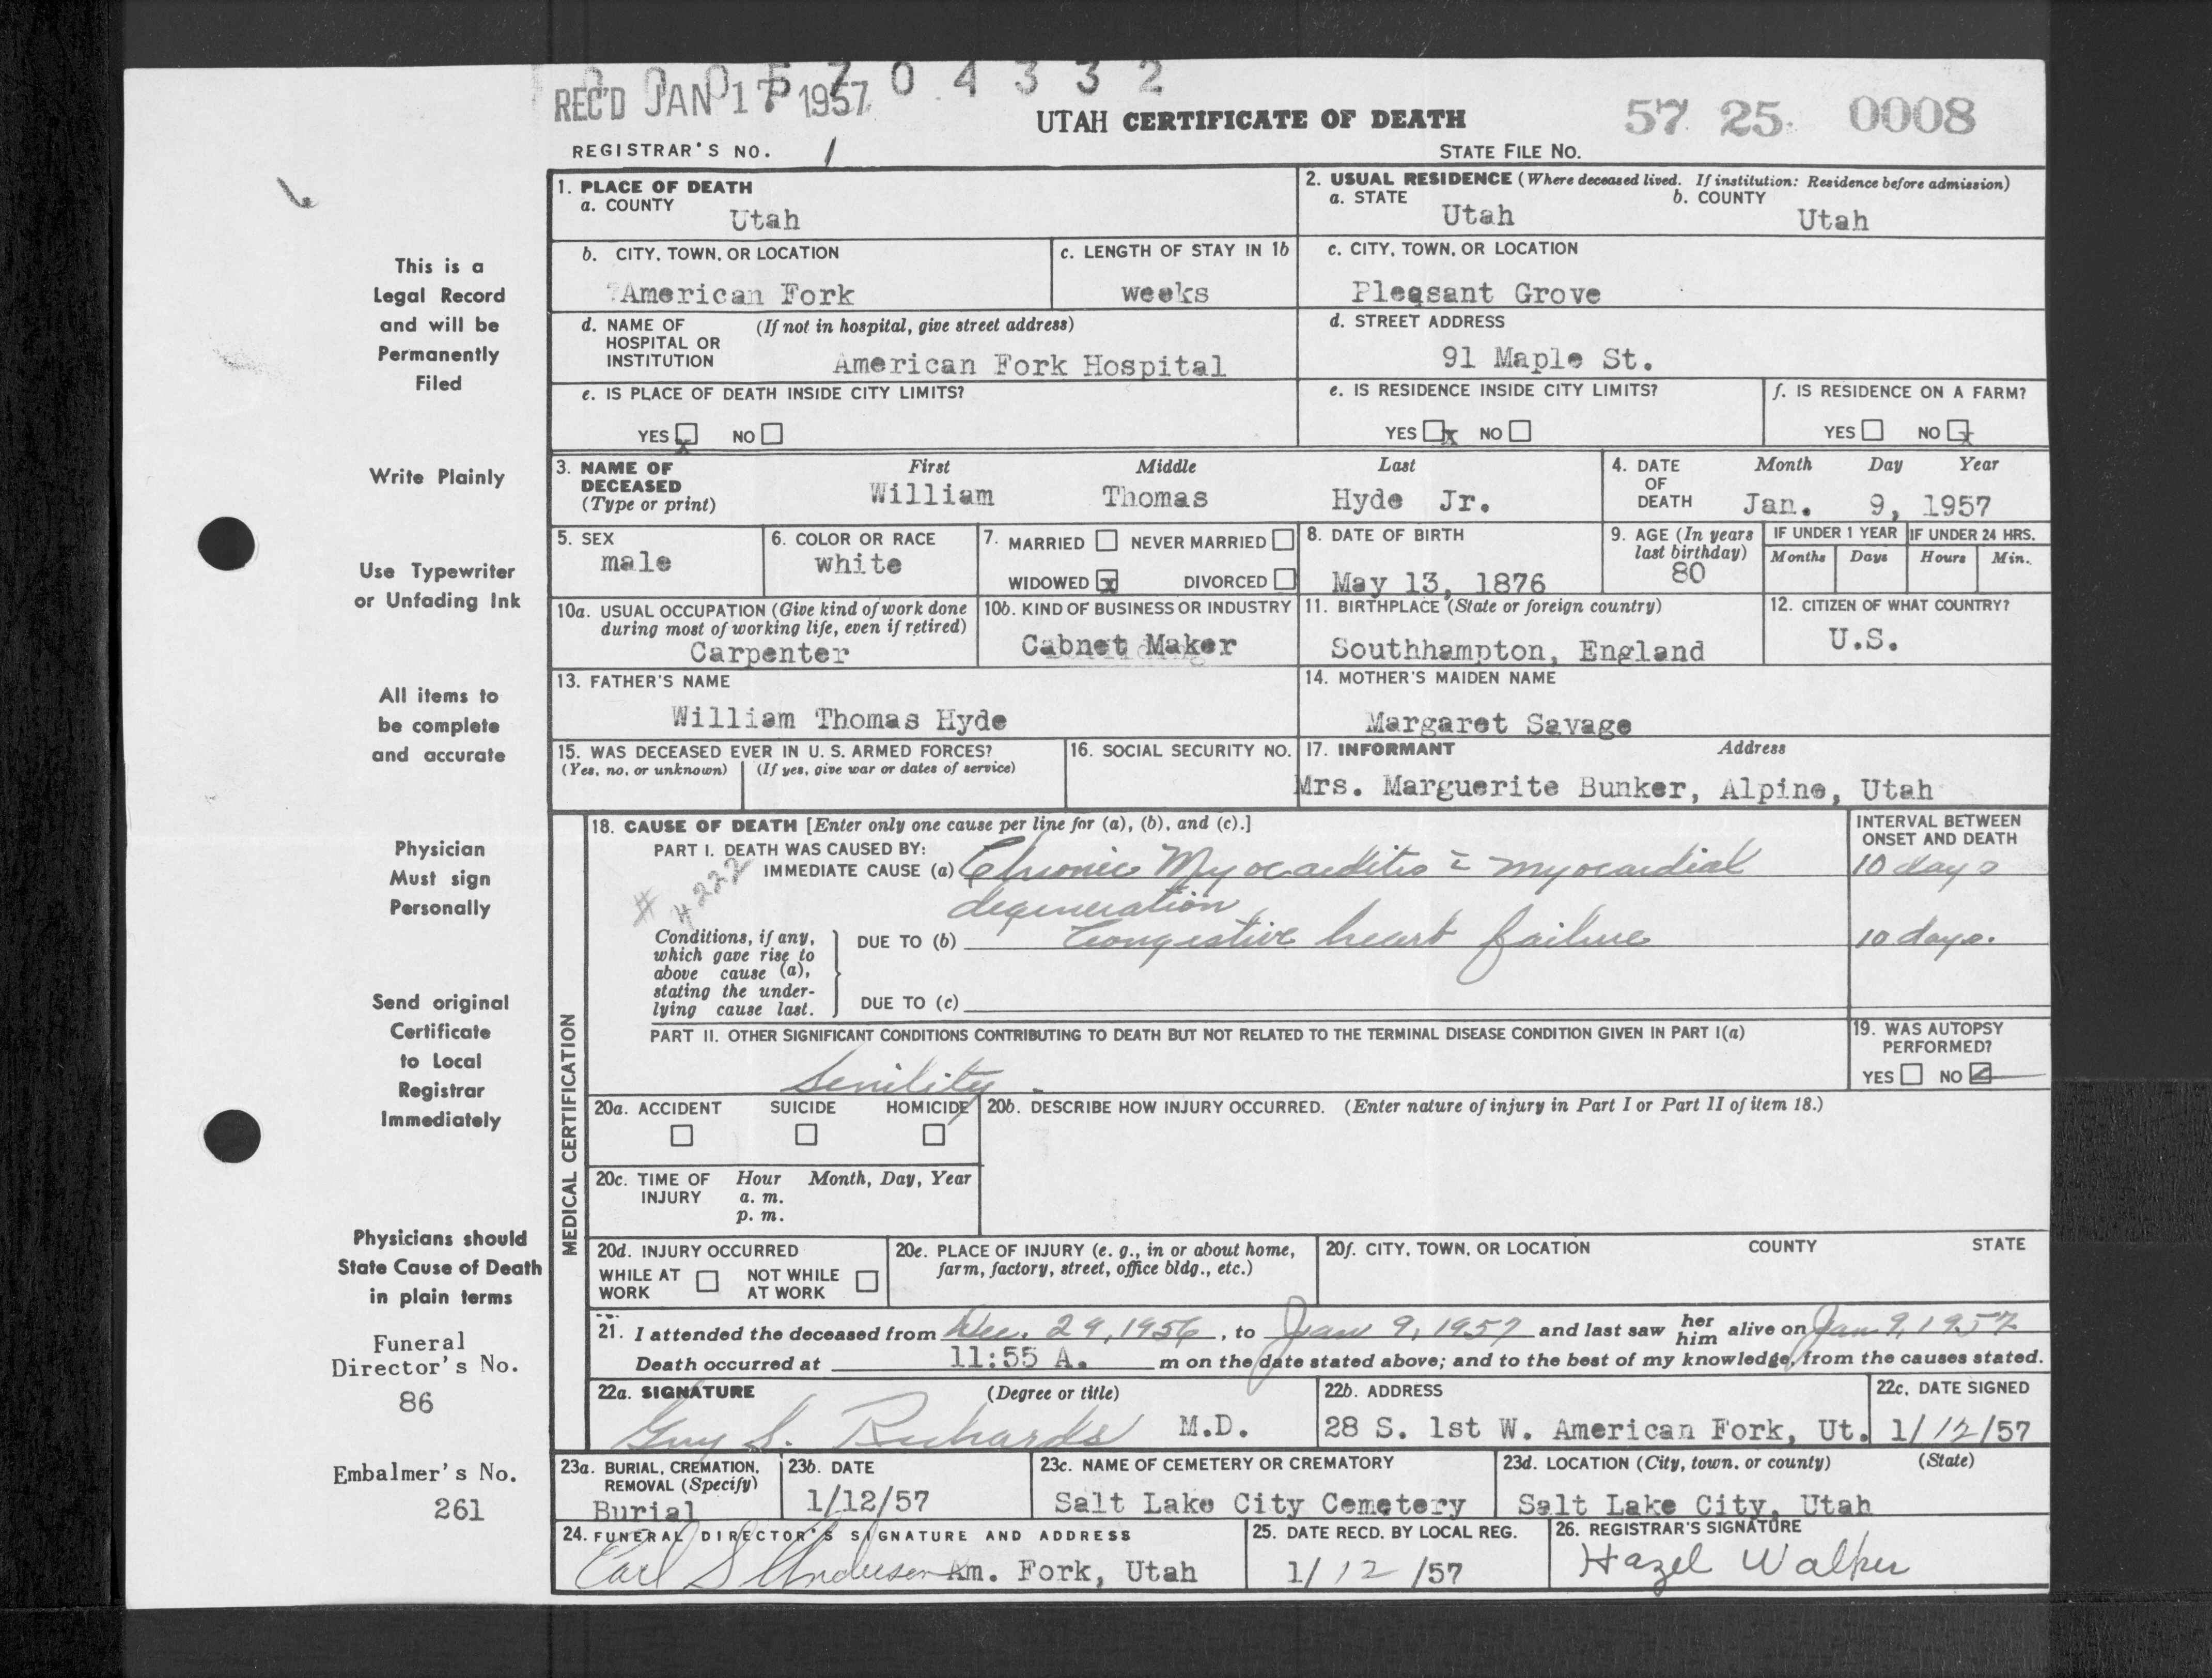 0 0 0 5 7 0 4 3 3 2
REC'D JAN 17 1957
UTAH CERTIFICATE OF DEATH
57 25 0008
REGISTRAR'S NO. 1
STATE FILE NO.
This is a
Legal Record
and will be
Permanently
Filed
Write Plainly
Use Typewriter
or Unfading Ink
All items to
be complete
and accurate
Physician
Must sign
Personally
Send original
Certificate
to Local
Registrar
Immediately
Physicians should
State Cause of Death
in plain terms
Funeral
Director's No.
86
Embalmer's No.
261
1. PLACE OF DEATH
a. COUNTY
Utah
2. USUAL RESIDENCE (Where deceased lived. If institution: Residence before admission)
a. STATE
Utah
b. COUNTY
Utah
b. CITY, TOWN, OR LOCATION
American Fork
c. LENGTH OF STAY IN 1b
weeks
c. CITY, TOWN, OR LOCATION
Pleasant Grove
d. NAME OF HOSPITAL OR INSTITUTION
(If not in hospital, give street address)
American Fork Hospital
d. STREET ADDRESS
91 Maple St.
e. IS PLACE OF DEATH INSIDE CITY LIMITS?
YES x NO
e. IS RESIDENCE INSIDE CITY LIMITS?
YES x NO
f. IS RESIDENCE ON A FARM?
YES NO x
3. NAME OF DECEASED
(Type or print)
First Middle Last
William Thomas Hyde Jr.
4. DATE OF DEATH
Month Day Year
Jan. 9, 1957
5. SEX
male
6. COLOR OR RACE
white
7. MARRIED NEVER MARRIED
WIDOWED x DIVORCED
8. DATE OF BIRTH
May 13, 1876
9. AGE (In years last birthday)
80
IF UNDER 1 YEAR
Months Days
IF UNDER 24 HRS.
Hours Min.
10a. USUAL OCCUPATION (Give kind of work done during most of working life, even if retired)
Carpenter
10b. KIND OF BUSINESS OR INDUSTRY
Cabnet Maker
11. BIRTHPLACE (State or foreign country)
Southhampton, England
12. CITIZEN OF WHAT COUNTRY?
U.S.
13. FATHER'S NAME
William Thomas Hyde
14. MOTHER'S MAIDEN NAME
Margaret Savage
15. WAS DECEASED EVER IN U. S. ARMED FORCES?
(Yes, no, or unknown) (If yes, give war or dates of service)
16. SOCIAL SECURITY NO.
17. INFORMANT Address
Mrs. Marguerite Bunker, Alpine, Utah
MEDICAL CERTIFICATION
18. CAUSE OF DEATH [Enter only one cause per line for (a), (b), and (c).]
INTERVAL BETWEEN ONSET AND DEATH
PART I. DEATH WAS CAUSED BY:
IMMEDIATE CAUSE (a) Chronic Myocarditis c̄ myocardial
degeneration
10 days
# 4222
Conditions, if any, which gave rise to above cause (a), stating the underlying cause last.
DUE TO (b) Congestive heart failure
10 days.
DUE TO (c)
PART II. OTHER SIGNIFICANT CONDITIONS CONTRIBUTING TO DEATH BUT NOT RELATED TO THE TERMINAL DISEASE CONDITION GIVEN IN PART I(a)
Senility.
19. WAS AUTOPSY PERFORMED?
YES NO
20a. ACCIDENT SUICIDE HOMICIDE
20b. DESCRIBE HOW INJURY OCCURRED. (Enter nature of injury in Part I or Part II of item 18.)
20c. TIME OF INJURY
Hour Month, Day, Year
a. m.
p. m.
20d. INJURY OCCURRED
WHILE AT WORK NOT WHILE AT WORK
20e. PLACE OF INJURY (e. g., in or about home, farm, factory, street, office bldg., etc.)
20f. CITY, TOWN, OR LOCATION COUNTY STATE
21. I attended the deceased from Dec. 29, 1956, to Jan 9, 1957 and last saw her him alive on Jan 9, 1957
Death occurred at 11:55 A. m on the date stated above; and to the best of my knowledge, from the causes stated.
22a. SIGNATURE (Degree or title)
Guy S. Richards M.D.
22b. ADDRESS
28 S. 1st W. American Fork, Ut.
22c. DATE SIGNED
1/12/57
23a. BURIAL, CREMATION, REMOVAL (Specify)
Burial
23b. DATE
1/12/57
23c. NAME OF CEMETERY OR CREMATORY
Salt Lake City Cemetery
23d. LOCATION (City, town, or county) (State)
Salt Lake City, Utah
24. FUNERAL DIRECTOR'S SIGNATURE AND ADDRESS
Earl S Anderson Am. Fork, Utah
25. DATE RECD. BY LOCAL REG.
1/12/57
26. REGISTRAR'S SIGNATURE
Hazel Walker